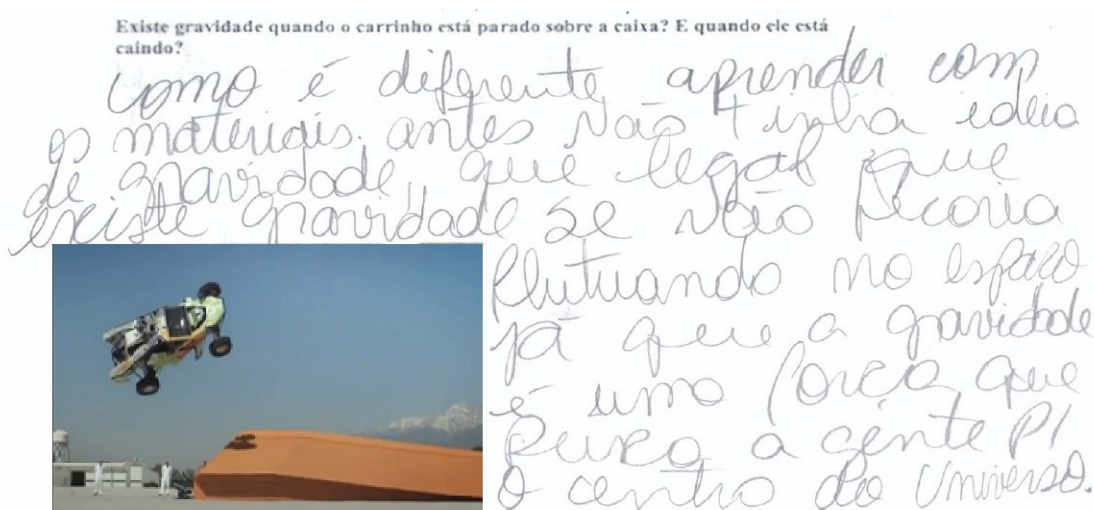 Existe gravidade quando o carrinho está parado sobre a caixa? E quando ele está
caindo?
Como é diferente aprender com
os materiais. antes não tinha ideia
de gravidade, que legal que
existe gravidade se não ficaria
flutuando no espaço
já que a gravidade
é uma força que
puxa a gente p/
o centro do Universo.